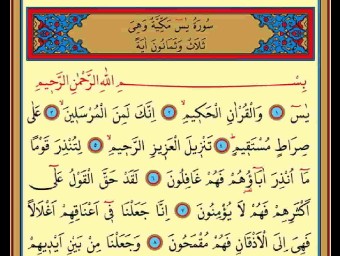 سُورَةُ يٰسٓ مَكِّيَّةٌ وَهِىَ
ثَلَاثٌ وَثَمَانُونَ اٰيَةً
بِسْمِ اللّٰهِ الرَّحْمٰنِ الرَّحِيمِ
يٰسٓ ﴿١﴾ وَالْقُرْاٰنِ الْحَكِيمِ ﴿٢﴾ اِنَّكَ لَمِنَ الْمُرْسَلِينَ ﴿٣﴾ عَلٰى
صِرَاطٍ مُسْتَقِيمٍ ﴿٤﴾ تَنْزِيلَ الْعَزِيزِ الرَّحِيمِ ﴿٥﴾ لِتُنْذِرَ قَوْمًا
مَٓا اُنْذِرَ اٰبَٓاؤُ۬هُمْ فَهُمْ غَافِلُونَ ﴿٦﴾ لَقَدْ حَقَّ الْقَوْلُ عَلٰٓى
اَكْثَرِهِمْ فَهُمْ لَا يُؤْمِنُونَ ﴿٧﴾ اِنَّا جَعَلْنَا فٓى اَعْنَاقِهِمْ اَغْلَالًا
فَهِىَ اِلَى الْاَذْقَانِ فَهُمْ مُقْمَحُونَ ﴿٨﴾ وَجَعَلْنَا مِنْ بَيْنِ اَيْدِيهِمْ